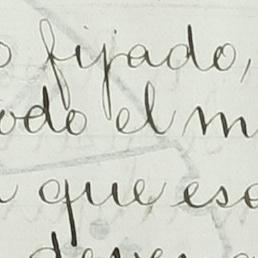 o fijado,
odo el m
que eso